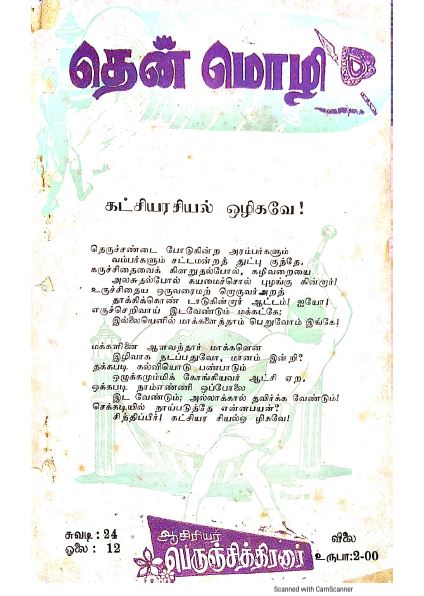 தென் மொழி
கட்சியரசியல் ஒழிகவே!
தெருச்சண்டை போடுகின்ற அரம்பர்களும்
வம்பர்களும் சட்டமன்றத் துட்பு குந்தே,
கருச்சிதைவைக் கிளறுதல்போல், கழிவறையை
அலசுதல்போல் கயமைச்சொல் புழங்கு கின்றார்!
உருச்சிதைய ஒருவரைமற் றொருவர்அறத்
தாக்கிக்கொண் டாடுகின்றார் ஆட்டம்! ஐயோ!
எருச்செறிவாய் இடவேண்டும் மக்கட்கே;
இல்லையெனில் மாக்களைத்தாம் பெறுவோம் இங்கே!
மக்களினை ஆளவந்தார் மாக்களென
இழிவாக நடப்பதுவோ, மானம் இன்றி?
தக்கபடி கல்வியொடு பண்பாடும்
ஒழுக்கமும்மிக் கோங்கியவர் ஆட்சி ஏற,
ஒக்கபடி நாம்எண்ணி ஒப்போலை
இட வேண்டும்; அல்லாக்கால் தவிர்க்க வேண்டும்!
செக்கடியில் நாய்படுத்தே என்னபயன்?
சிந்திப்பீர்! கட்சியர சியல்ஒ ழிகவே!
சுவடி : 24
ஓலை : 12
ஆசிரியர்
பெருஞ்சித்திரனார்
விலை
உருபா:2-00
Scanned with CamScanner